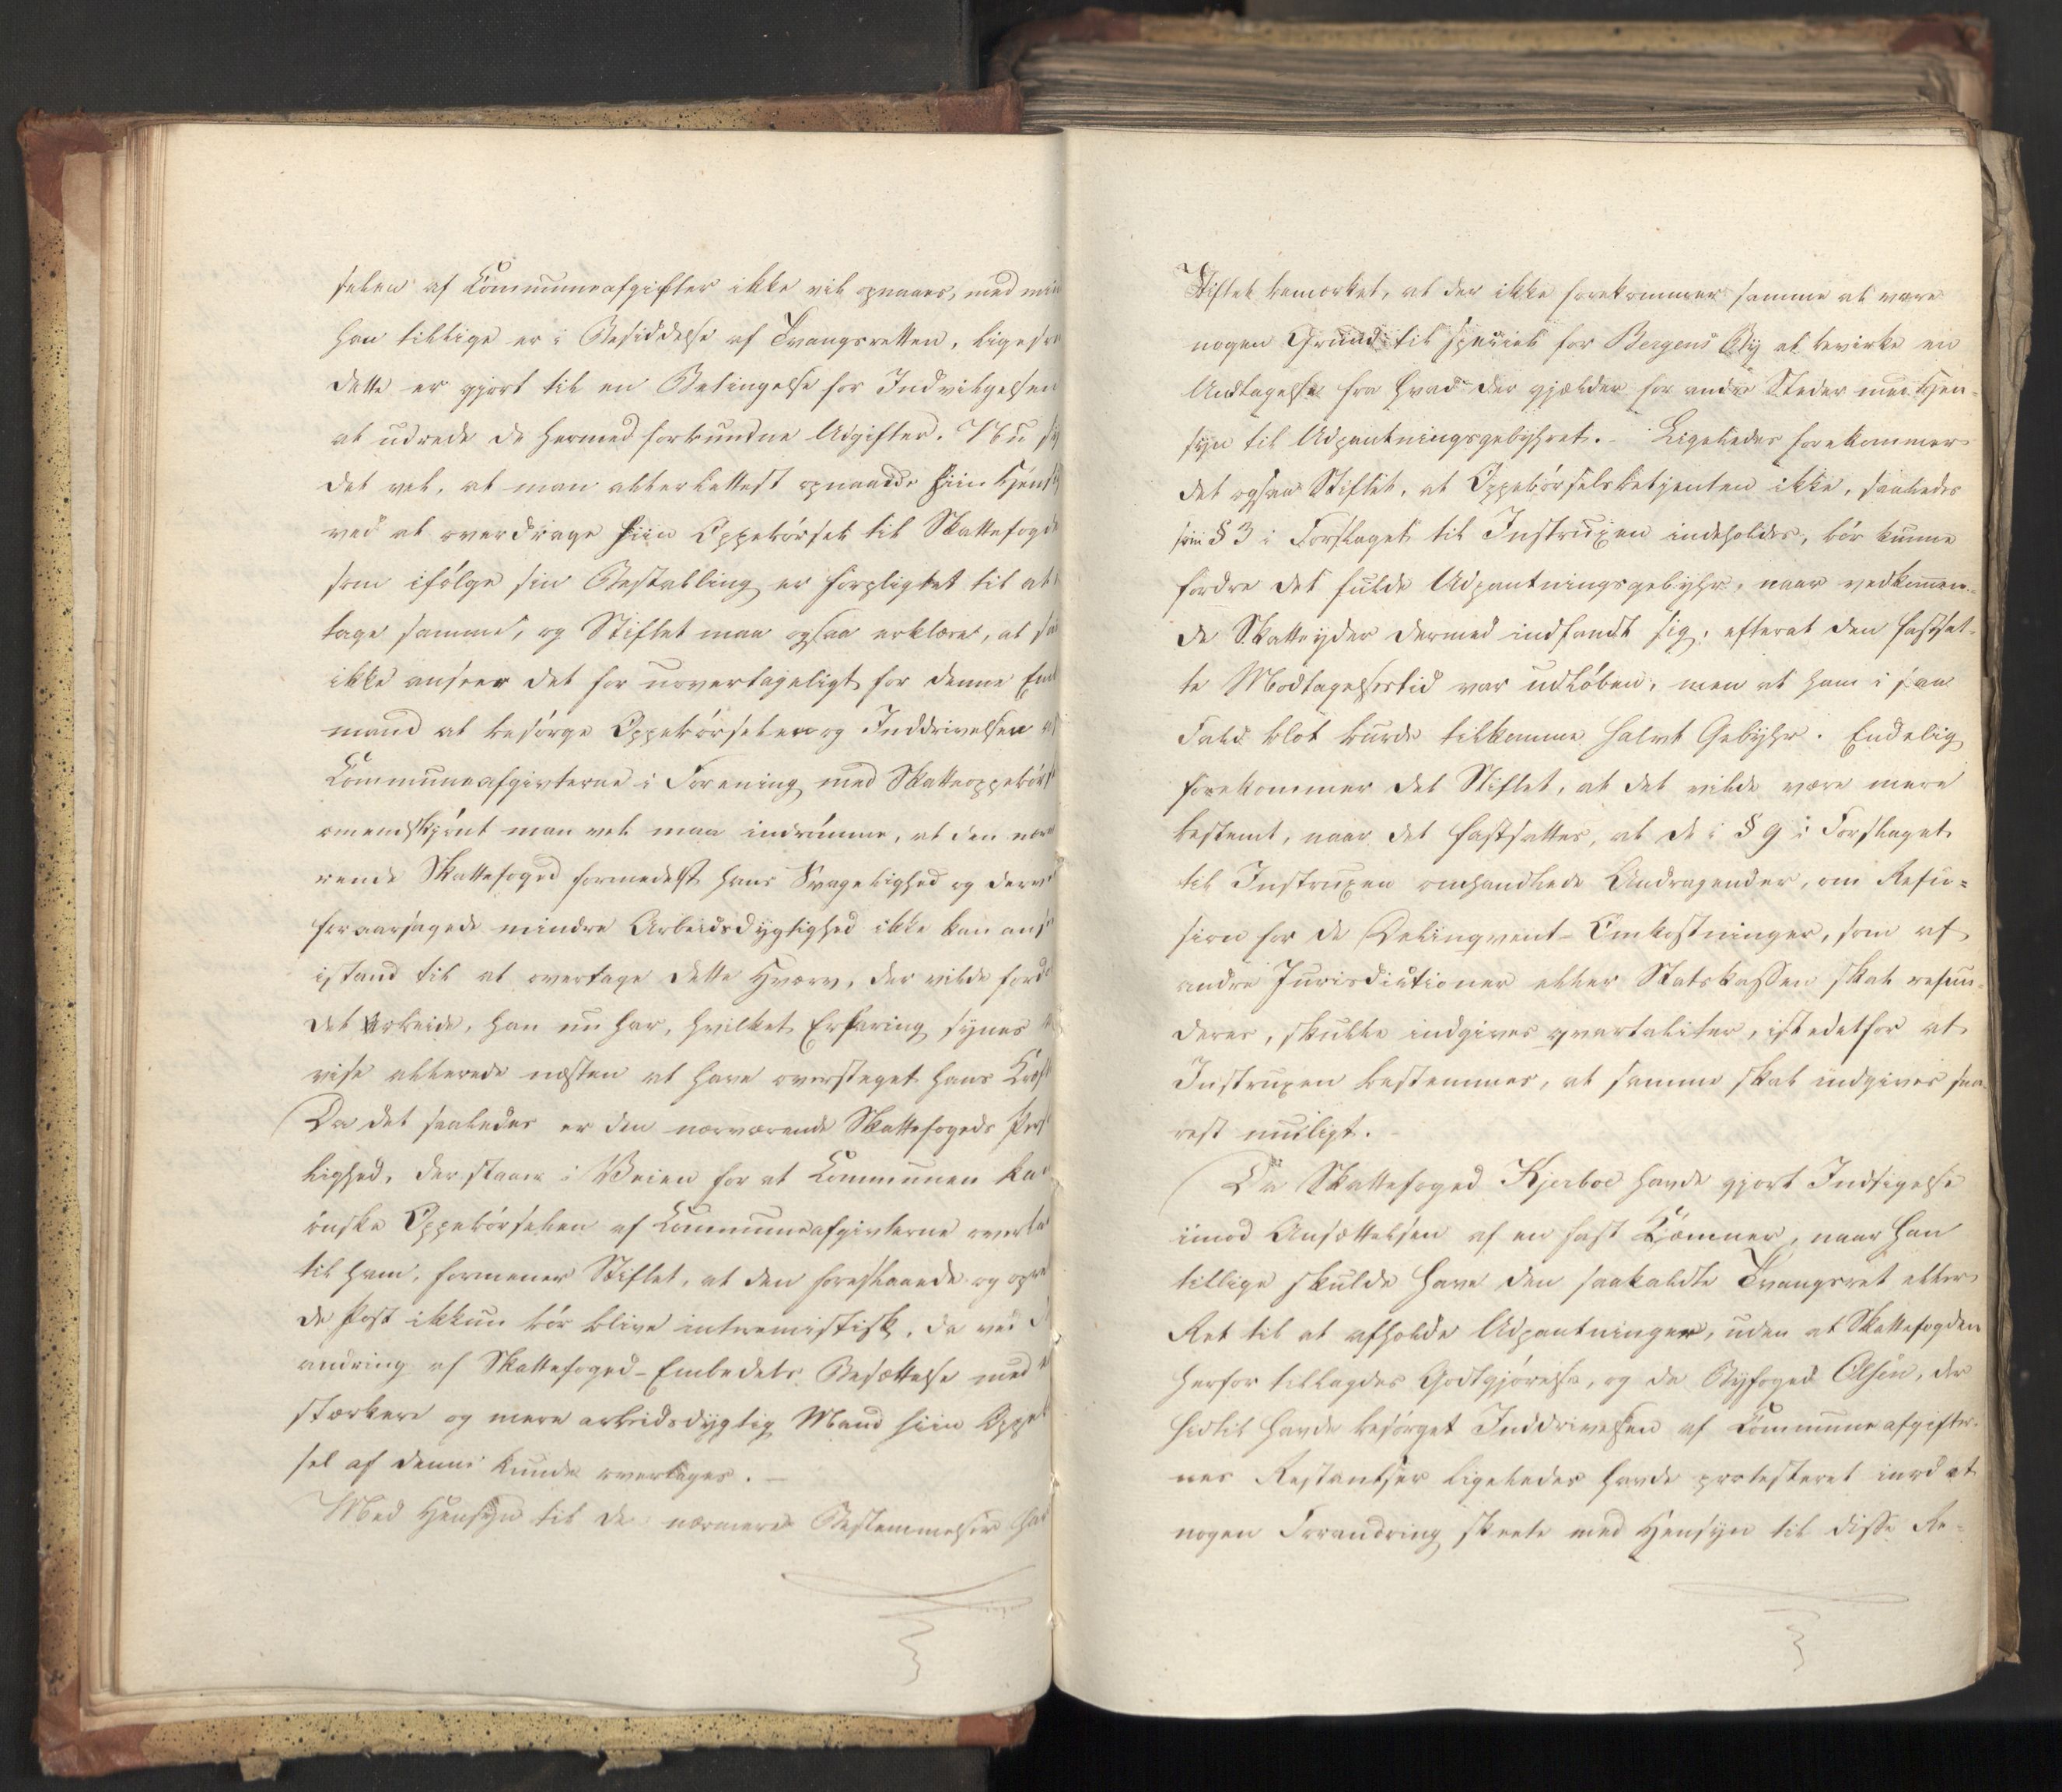 selen af Communeafgifter ikke vil opnaaes, med min
han tillige er i Besiddelse af Tvangsretten, ligesom
dette er gjort til en Betingelse for Indvilgelsen
at udrede de hermed forbundne Udgifter. Nu sy
det vel, at man allerlettest opnaaede hiin Hensi
ved at overdrage hiin Oppebørsel til Skattefogde
som ifølge sin Bestalling er forpligtet til at
tage samme, og Stiftet maa ogsaa erklære, at sa
ikke anseer det for uovertageligt for denne Em
mand at besørge Oppebørselen og Inddrivelsen af
Communeafgivterne i Forening med Skatteoppebørs
omendskjønt man vel maa indrømme, at den nær
rende Skattefoged formedelst hans Svagelighed og derve
foraarsagede mindre Arbeidsdygtighed ikke kan ans
istand til at overtage dette Hværv, der vilde ford
det Arbeide, han nu har, hvilket Erfaring synes
vise allerede næsten at have oversteget hans Kræft
Da det saaledes er den nærværende Skattefogeds Pers
lighed, der staaer i Veien for at Communen ka
ønske Oppebørselen af Communeafgivterne overla
til ham, formener Stiftet, at den foreslaaede og opre
de Post ikkun bør blive interemistisk, da ved
andring af Skattefoged-Embedets Besættelse med
stærkere og mere arbeidsdygtig Mand hiin Oppeb
sel af denne kunde overtages. -
Med Hensyn til de nærmere Bestemmelser har
Stiftet bemærket, at der ikke forekommer samme at være
nogen Grund til specielt for Bergens By at bevirke en
Undtagelse fra hvad der gjælder for andre Steder med Hen-
syn til Udpantningsgebyhret. - Ligeledes forekommer
det ogsaa Stiftet, at Oppebørselsbetjenten ikke, saaledes
som § 3 i Forslaget til Instruxen indeholdes, bør kunne
fordre det fulde Udpantningsgebyhr, naar vedkommen-
de Skatteyder dermed indfandt sig, efterat den fastsat-
te Modtagelsestid var udløben, men at ham i saa
Fald blot burde tilkomme halvt Gebyhr. Endelig
forekommer det Stiftet, at det vilde være mere
bestemt, naar det fastsattes, at de i § 9 i Forslaget
til Instruxen omhandlede Andragender, om Refu-
sion for de Delinqvent-Omkostninger, som af
andre Jurisdictioner eller Statskassen skal refun-
deres, skulle indgives qvartaliter, istedetfor at
Instruxen bestemmer, at samme skal indgives sna-
rest muligt.
Da Skattefoged Kjerboe havde gjort Indsigelse
imod Ansættelsen af en fast Kæmner, naar han
tillige skulde have den saakaldte Tvangsret eller
Ret til at afholde Udpantninger, uden at Skattefogden
herfor tillagdes Godtgjørelse, og da Byfoged Olsen, der
hidtil havde besørget Inddrivelsen af Communeafgifter-
nes Restantser ligeledes havde protesteret imod at
nogen Forandring skeete med Hensyn til disse Re-